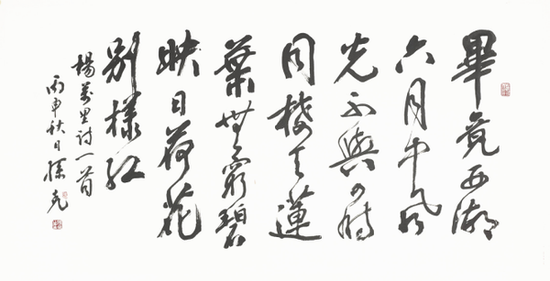 畢竟西湖
六月中風
光不與四時
同接天蓮
葉無窮碧
映日荷花
別樣紅
楊萬里詩一首
丙申秋日孫克